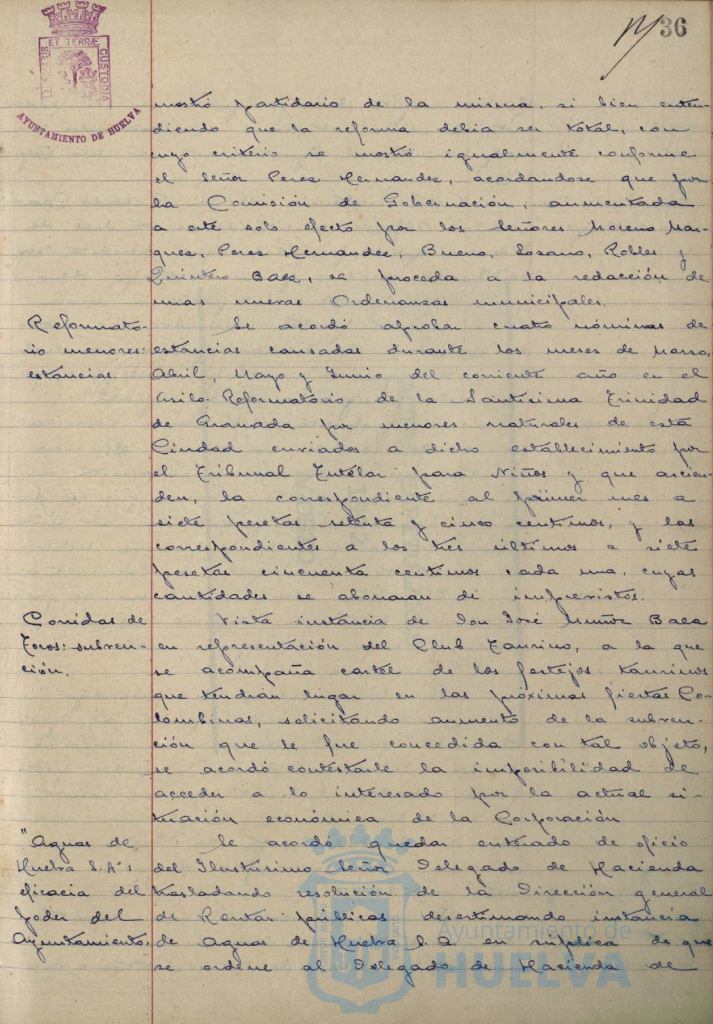 36
ET TERRÆ
CUSTODIA
AYUNTAMIENTO DE HUELVA
mostró partidario de la misma, si bien enten-
diendo que la reforma debia ser total, con
cuyo criterio se mostró igualmente conforme
el Señor Perez Hernandez, acordandose que por
la Comisión de Gobernación, aumentada
a este solo efecto por los Señores Moreno Mar-
quez, Perez Hernandez, Bueno, Lozano, Robles y
Quintero Baez, se proceda a la redacción de
unas nuevas Ordenanzas municipales.
Reformato-
rio menores:
estancias.
Se acordó aprobar cuatro nóminas de
estancias causadas durante los meses de Marzo,
Abril, Mayo y Junio del corriente año en el
Asilo-Reformatorio de la Santisima Trinidad
de Granada por menores naturales de esta
Ciudad enviados a dicho establecimiento por
el Tribunal Tutelar para Niños y que ascien-
den, la correspondiente al primer mes a
siete pesetas setenta y cinco centimos, y las
correspondientes a los tres últimos a siete
pesetas cincuenta centimos cada una, cuyas
cantidades se abonaran de imprevistos.
Corridas de
Toros: subven-
ción.
Vista instancia de Don José Muñoz Baez
en representación del Club Taurino, a la que
se acompaña cartel de los festejos taurinos
que tendrán lugar en las próximas fiestas Co-
lombinas, solicitando aumento de la subven-
ción que le fue concedida con tal objeto,
se acordó contestarle la imposibilidad de
acceder a lo interesado por la actual si-
tuación económica de la Corporación
"Aguas de
Huelva S.A":
eficacia del
poder del
Ayuntamiento.
Se acordó quedar enterado de oficio
del Ilustrisimo Señor Delegado de Hacienda
trasladando resolución de la Dirección general
de Rentas públicas desestimando instancia
de Aguas de Huelva S.A. en súplica de que
se ordene al Delegado de Hacienda de
Ayuntamiento de
HUELVA